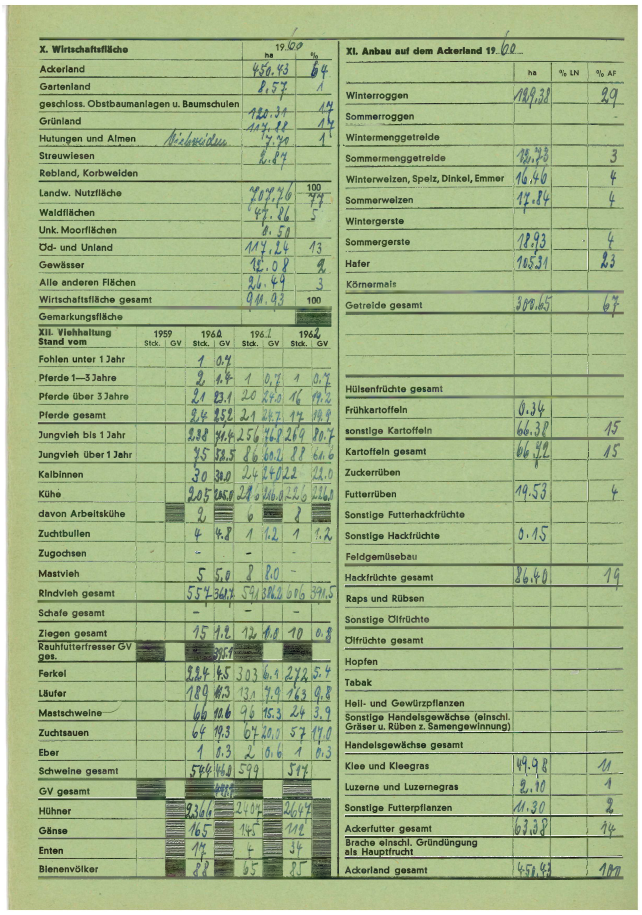 X. Wirtschaftsfläche 1960
ha %
Ackerland 450.43 64
Gartenland 8.57 1
geschloss. Obstbaumanlagen u. Baumschulen 120.31 17
Grünland 117.88 17
Hutungen und Almen Viehweiden 7.70 1
Streuwiesen 2.87
Rebland, Korbweiden
Landw. Nutzfläche 707.76 100 77
Waldflächen 47.86 5
Unk. Moorflächen 0.50
Öd- und Unland 117.24 13
Gewässer 12.08 2
Alle anderen Flächen 26.49 3
Wirtschaftsfläche gesamt 911.93 100
Gemarkungsfläche
XII. Viehhaltung 1959 1960 1961 1962
Stand vom Stck. GV Stck. GV Stck. GV Stck. GV
Fohlen unter 1 Jahr 1 0.7
Pferde 1—3 Jahre 2 1.4 1 0.7 1 0.7
Pferde über 3 Jahre 21 23.1 20 24.0 16 19.2
Pferde gesamt 24 25.2 21 24.7 17 19.9
Jungvieh bis 1 Jahr 238 71.4 256 76.8 269 80.7
Jungvieh über 1 Jahr 75 52.5 86 60.2 88 61.6
Kalbinnen 30 30.0 24 24.0 22 22.0
Kühe 205 205.0 216.0 226 226.0
davon Arbeitskühe 2 6 8
Zuchtbullen 4 4.8 1 1.2 1 1.2
Zugochsen - - -
Mastvieh 5 5.0 8 8.0 -
Rindvieh gesamt 557 368.7 591 386.2 606 391.5
Schafe gesamt - - -
Ziegen gesamt 15 1.2 12 10 0.8
Rauhfutterfresser GV
ges. 395.1
Ferkel 224 4.5 303 6.1 272 5.4
Läufer 189 11.3 131 7.9 163 9.8
Mastschweine 66 10.6 96 15.3 24 3.9
Zuchtsauen 64 19.3 67 20.0 57 17.0
Eber 1 0.3 2 0.6 1 0.3
Schweine gesamt 544 46.0 599 517
GV gesamt
Hühner 2366 2407 2647
Gänse 165 145 112
Enten 17 4 34
Bienenvölker 88 65 85
XI. Anbau auf dem Ackerland 1960
ha % LN % AF
Winterroggen 129.38 29
Sommerroggen -
Wintermenggetreide
Sommermenggetreide 12.73 3
Winterweizen, Spelz, Dinkel, Emmer 16.46 4
Sommerweizen 17.84 4
Wintergerste
Sommergerste 18.93 4
Hafer 105.31 23
Körnermais
Getreide gesamt 300.65 67
Hülsenfrüchte gesamt
Frühkartoffeln 0.34
sonstige Kartoffeln 66.38 15
Kartoffeln gesamt 66.72 15
Zuckerrüben
Futterrüben 19.53 4
Sonstige Futterhackfrüchte
Sonstige Hackfrüchte 0.15
Feldgemüsebau
Hackfrüchte gesamt 86.40 19
Raps und Rübsen
Sonstige Ölfrüchte
Ölfrüchte gesamt
Hopfen
Tabak
Heil- und Gewürzpflanzen
Sonstige Handelsgewächse (einschl.
Gräser u. Rüben z. Samengewinnung)
Handelsgewächse gesamt
Klee und Kleegras 49.98 11
Luzerne und Luzernegras 2.10 1
Sonstige Futterpflanzen 11.30 2
Ackerfutter gesamt 63.38 14
Brache einschl. Gründüngung
als Hauptfrucht
Ackerland gesamt 450.43 100